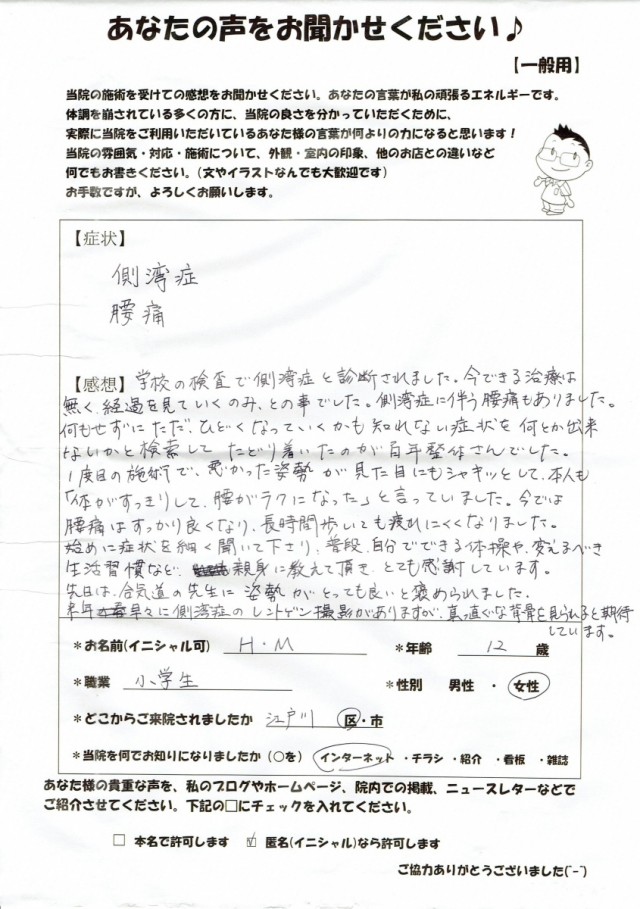 あなたの声をお聞かせください♪
【一般用】
当院の施術を受けての感想をお聞かせください。あなたの言葉が私の頑張るエネルギーです。
体調を崩されている多くの方に、当院の良さを分かっていただくために、
実際に当院をご利用いただいているあなた様の言葉が何よりの力になると思います!
当院の雰囲気・対応・施術について、外観・室内の印象、他のお店との違いなど
何でもお書きください。(文やイラストなんでも大歓迎です)
お手数ですが、よろしくお願いします。
【症状】
側湾症
腰痛
【感想】学校の検査で側湾症と診断されました。今できる治療は
無く、経過を見ていくのみ、との事でした。側湾症に伴う腰痛もありました。
何もせずにただ、ひどくなっていくかも知れない症状を何とか出来
ないかと検索してたどり着いたのが百年整体さんでした。
1度目の施術で、悪かった姿勢が見た目にもシャキッとして、本人も
「体がすっきりして、腰がラクになった」と言っていました。今では
腰痛はすっかり良くなり、長時間歩いても疲れにくくなりました。
始めに症状を細く聞いて下さり、普段、自分でできる体操や、変えるべき
生活習慣など、親身に教えて頂き、とても感謝しています。
先日は、合気道の先生に姿勢がとっても良いと褒められました。
来年早々に側湾症のレントゲン撮影がありますが、真っ直ぐな背骨を見られると期待
しています。
*お名前(イニシャル可) H・M *年齢 12 歳
*職業 小学生 *性別 男性 ・ 女性
*どこからご来院されましたか 江戸川 区・市
*当院を何でお知りになりましたか(○を) インターネット ・チラシ ・紹介 ・看板 ・雑誌
あなた様の貴重な声を、私のブログやホームページ、院内での掲載、ニュースレターなどで
ご紹介させてください。下記の□にチェックを入れてください。
□ 本名で許可します ☑ 匿名(イニシャル)なら許可します
ご協力ありがとうございました(^-^)